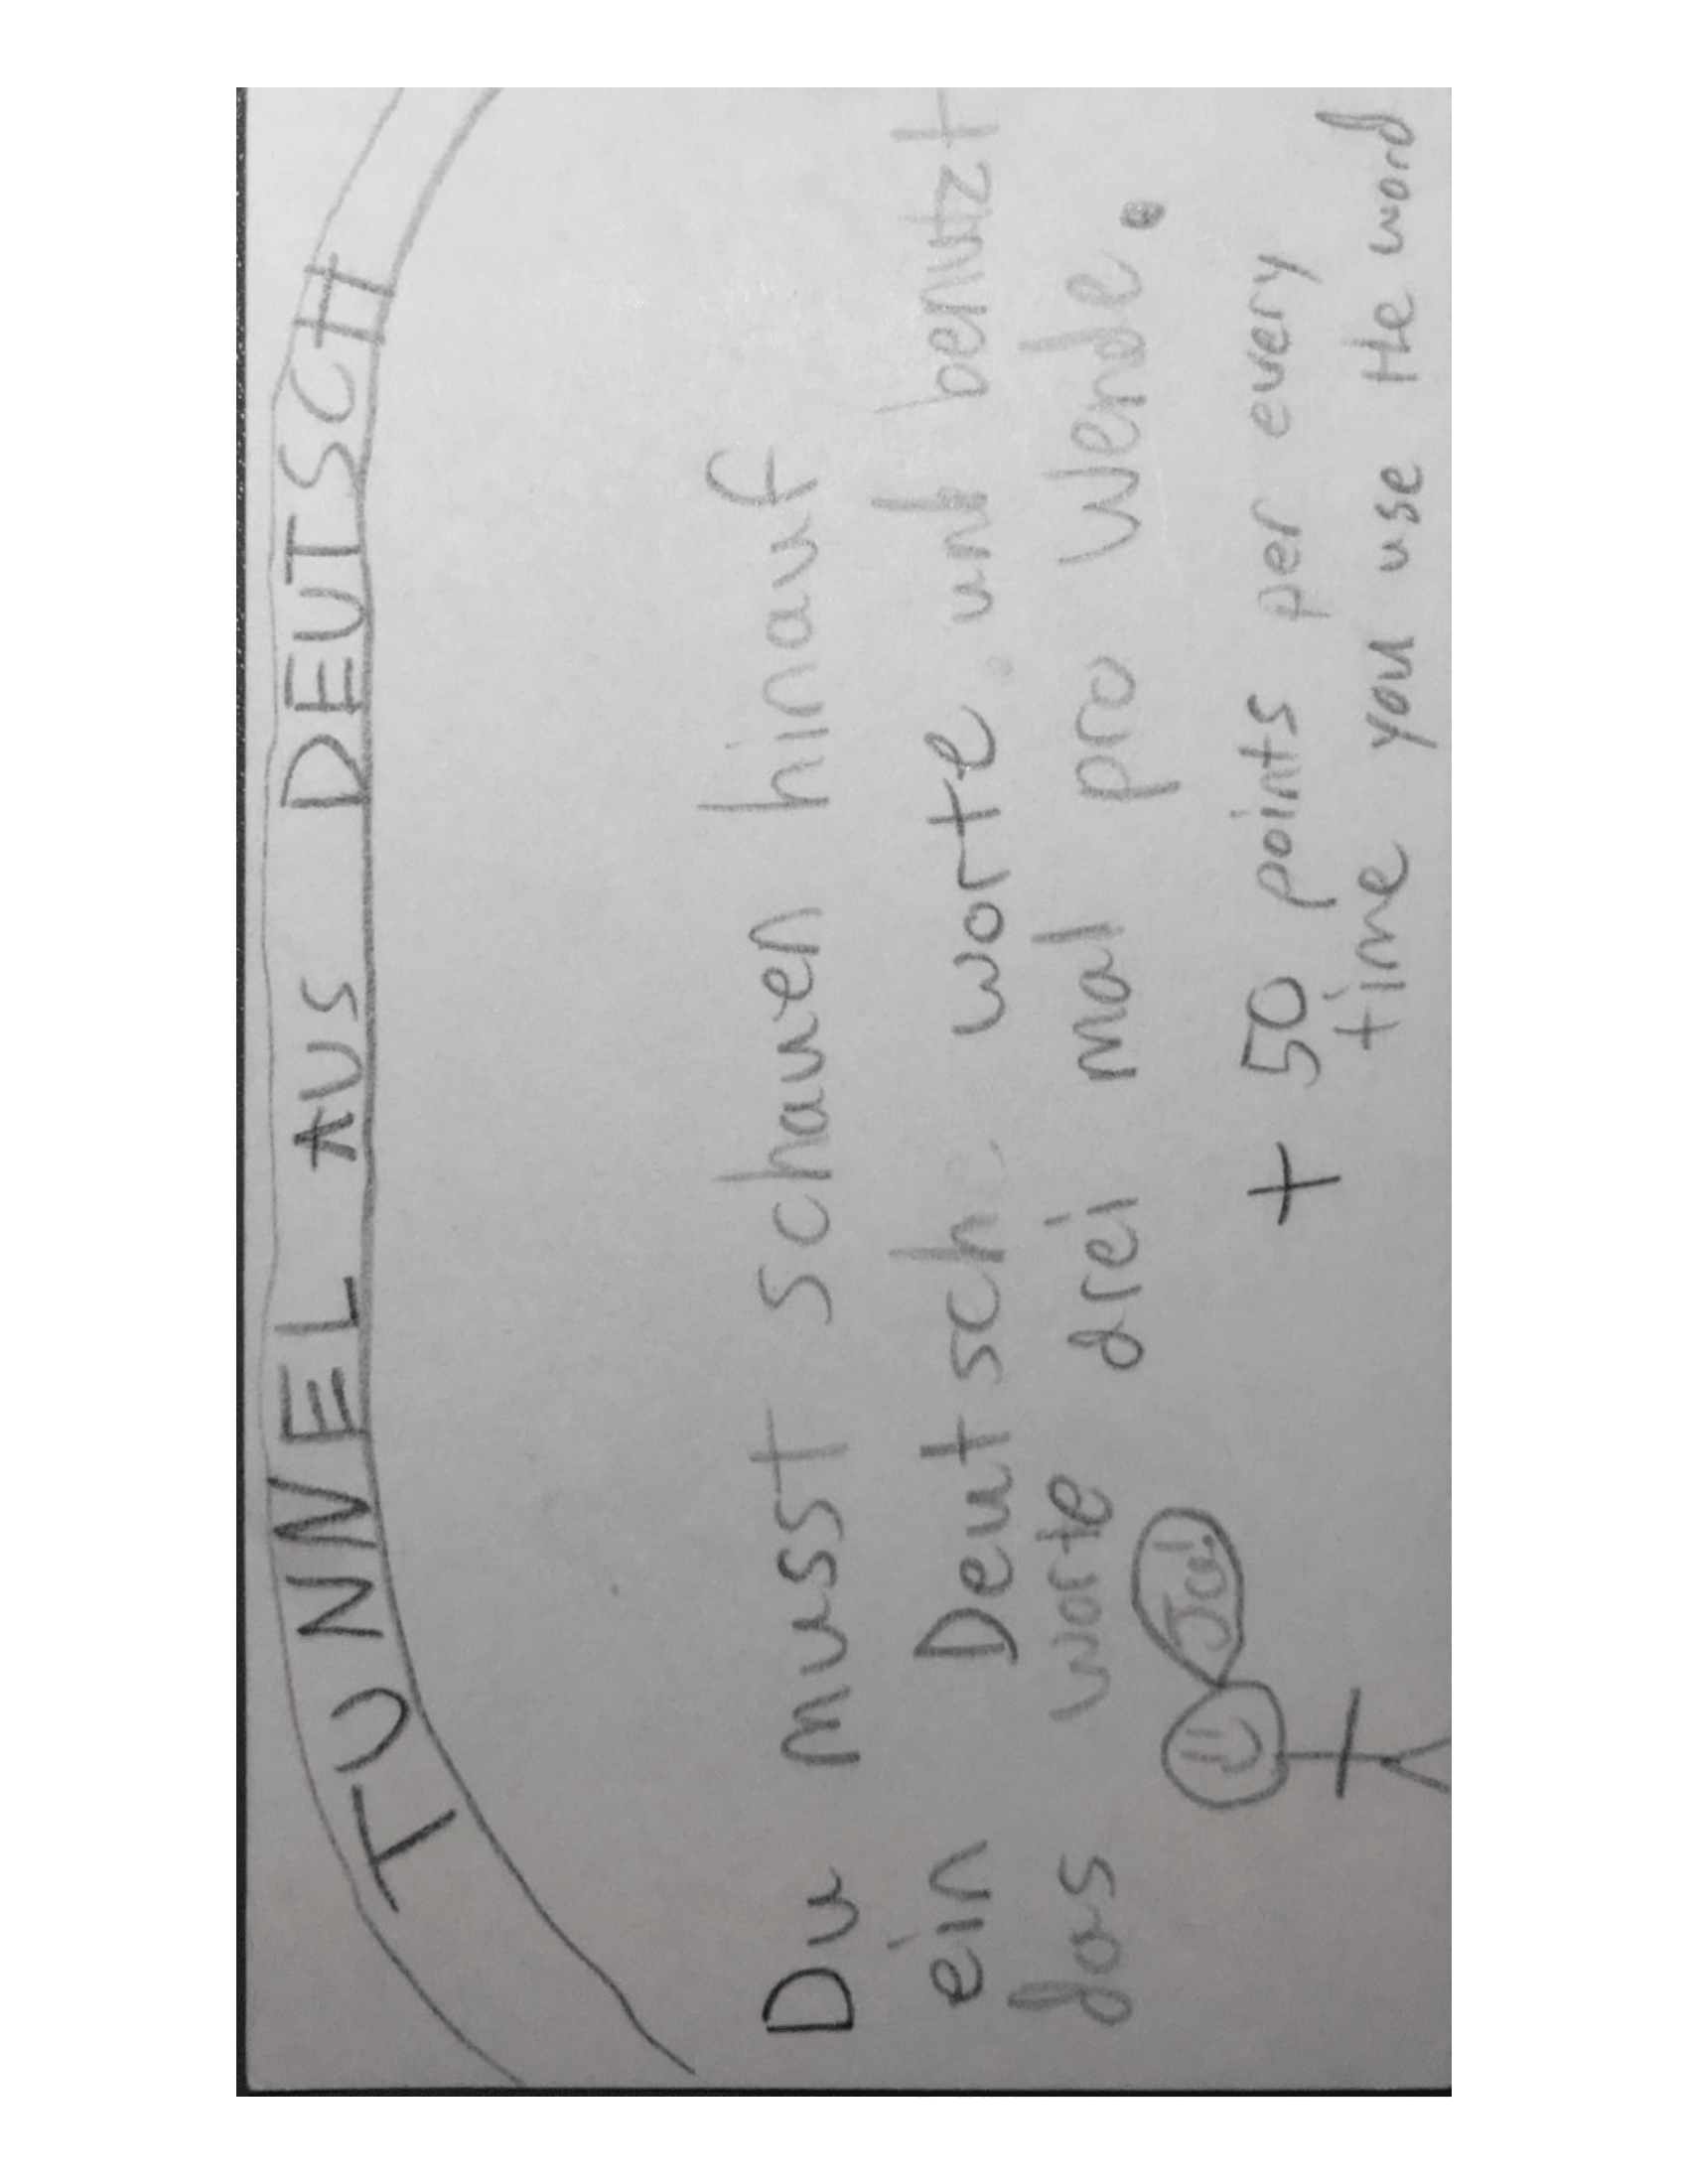 TUNNEL AUS DEUTSCH
Du musst schauen hinauf
ein Deutsch worte und benutzt
das worte drei mal pro Wende.
Ja!
+ 50 points per every
time you use the word